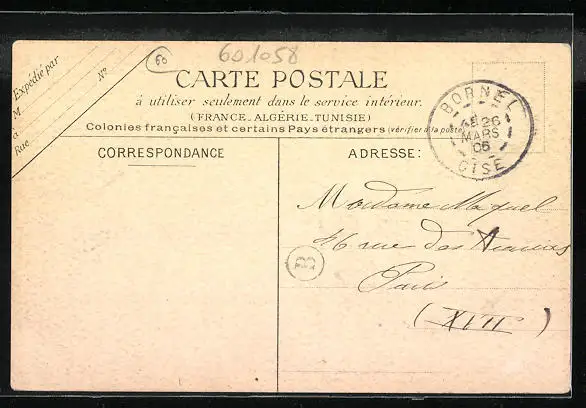 60
601058
Expédié par
M
à
Rue
N°
CARTE POSTALE
à utiliser seulement dans le service intérieur.
(FRANCE_ALGÉRIE_TUNISIE)
Colonies françaises et certains Pays étrangers (vérifier à la poste
CORRESPONDANCE
ADRESSE:
BORNEL
26
MARS
06
OISE
Madame Miquel
46 rue des
Paris
(XVII)
B